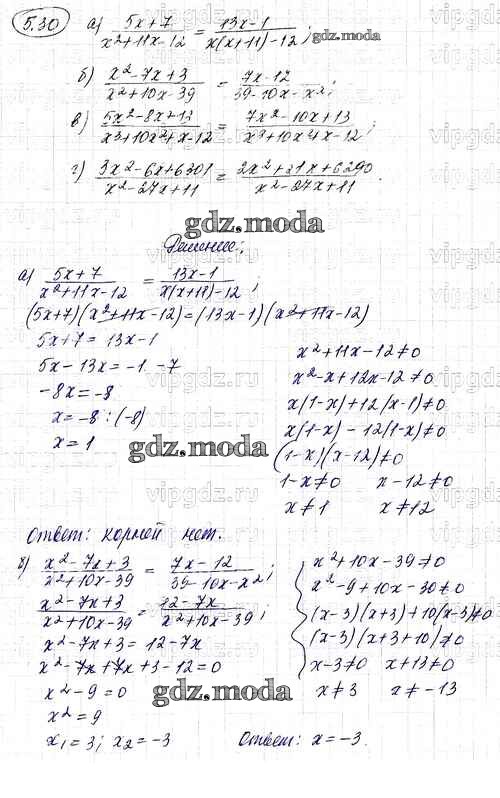 5.30
а) (5x+7)/(x²+11x-12) = (13x-1)/(x(x+11)-12);
gdz.moda
б) (x²-7x+3)/(x²+10x-39) = (7x-12)/(39-10x-x²);
в) (5x²-8x+13)/(x³+10x²+x-12) = (7x²-10x+13)/(x³+10x²+x-12);
г) (3x²-6x+6301)/(x²-27x+11) = (2x²+21x+6290)/(x²-27x+11).
gdz.moda
Решение:
а) (5x+7)/(x²+11x-12) = (13x-1)/(x(x+11)-12);
(5x+7)(x²+11x-12)=(13x-1)(x²+11x-12)
5x+7=13x-1
5x-13x=-1-7
-8x=-8
x=-8:(-8)
x=1
x²+11x-12≠0
x²-x+12x-12≠0
x(1-x)+12(x-1)≠0
x(1-x)-12(1-x)≠0
(1-x)(x-12)≠0
1-x≠0 x-12≠0
x≠1 x≠12
gdz.moda
Ответ: корней нет.
б) (x²-7x+3)/(x²+10x-39) = (7x-12)/(39-10x-x²);
(x²-7x+3)/(x²+10x-39) = (12-7x)/(x²+10x-39);
x²-7x+3=12-7x
x²-7x+7x+3-12=0
x²-9=0
x²=9
x₁=3; x₂=-3
x²+10x-39≠0
x²-9+10x-30≠0
(x-3)(x+3)+10(x-3)≠0
(x-3)(x+3+10)≠0
x-3≠0 x+13≠0
x≠3 x≠-13
gdz.moda
Ответ: x=-3.
vipgdz.ru